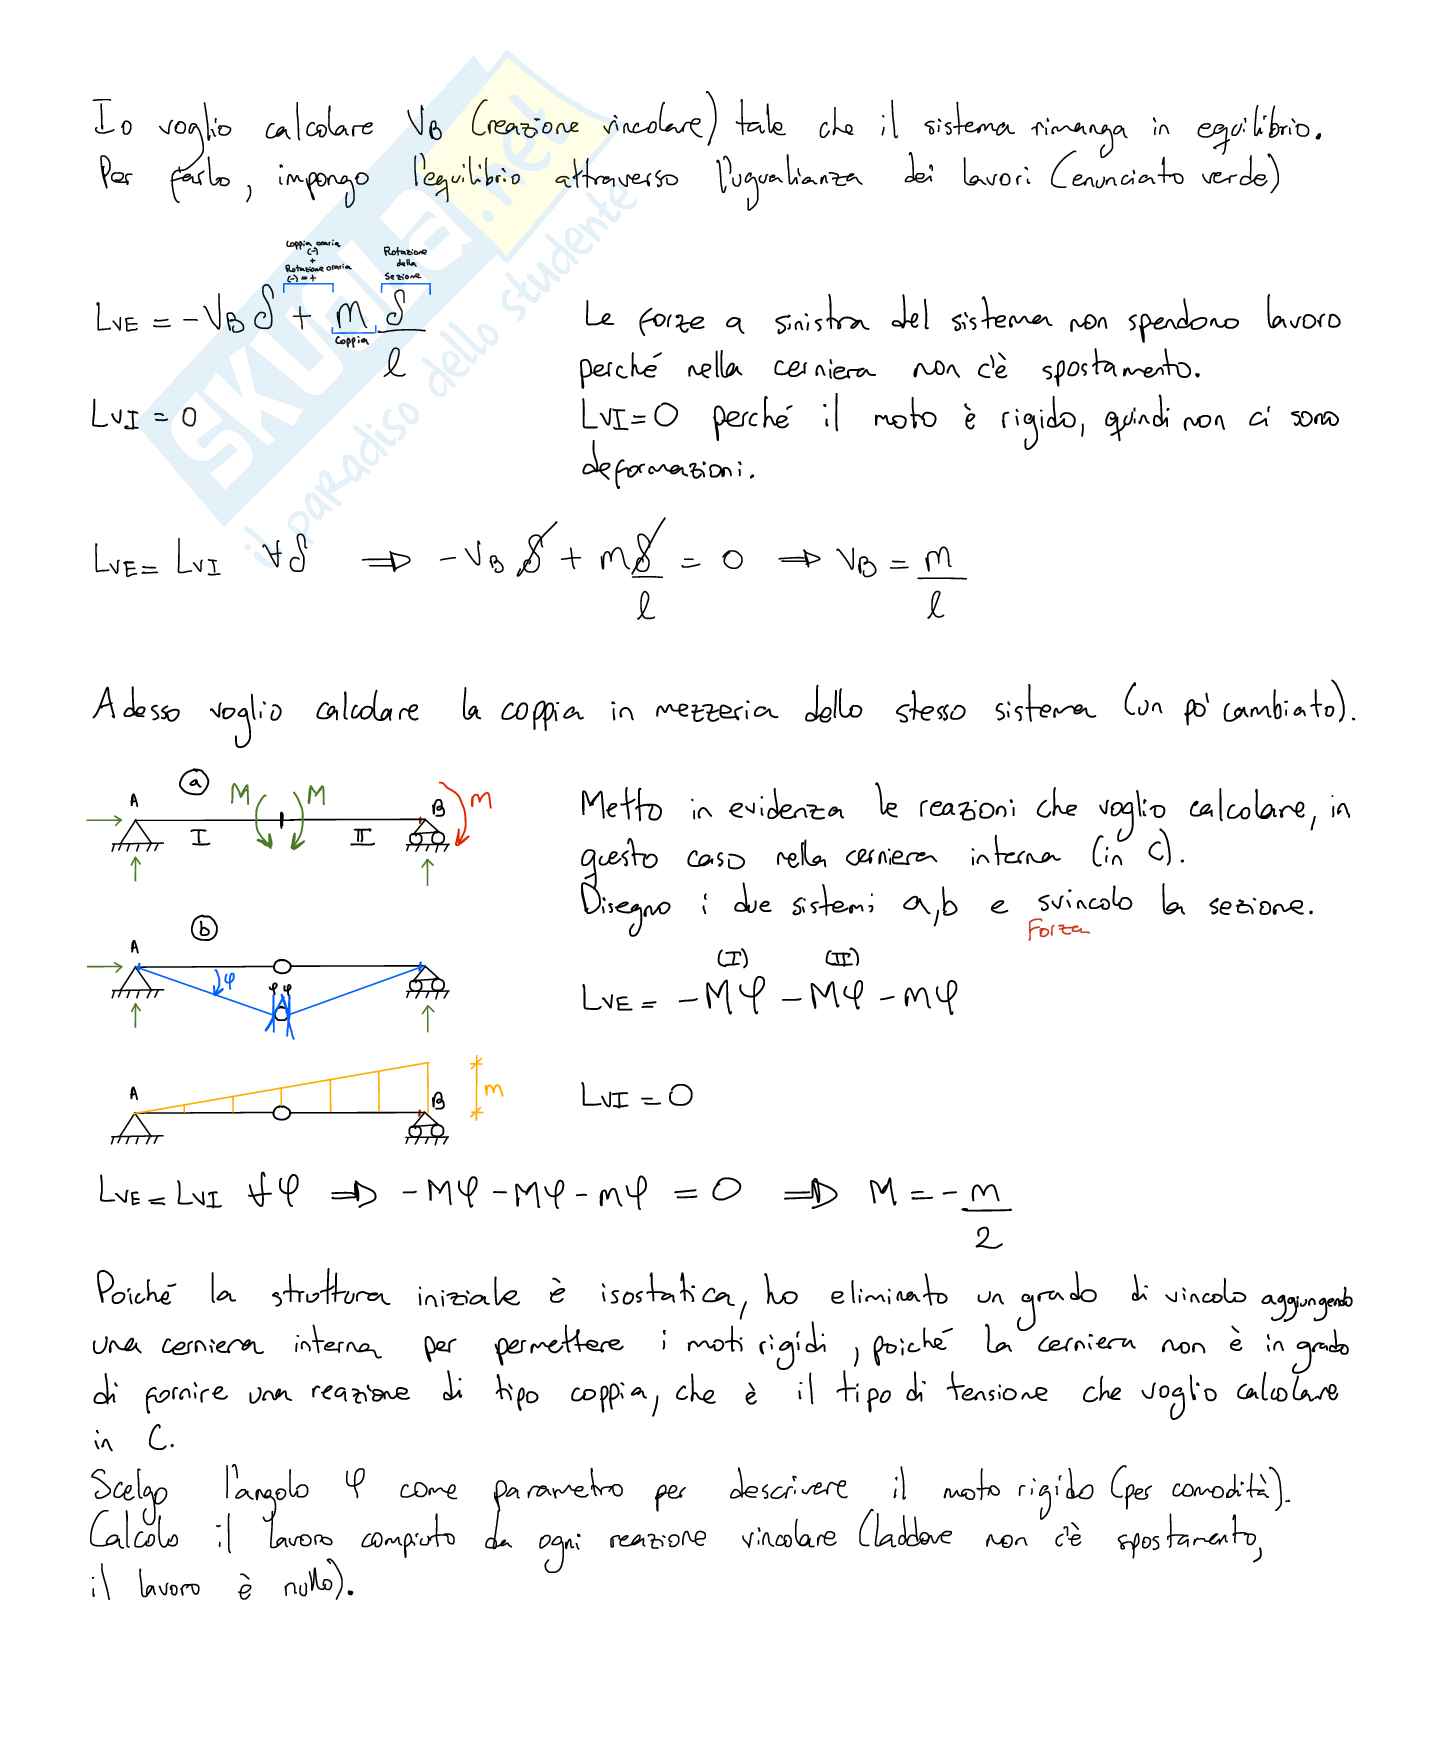 Io voglio calcolare VB (reazione vincolare) tale che il sistema rimanga in equilibrio.
Per farlo, impongo l'equilibrio attraverso l'uguaglianza dei lavori (enunciato verde)
SKUOLA.net
il paradiso dello studente
Coppia oraria
(-)
+
Rotazione oraria
(-) = +
Rotazione
della
Sezione
LVE = -VB δ + m δ/l
Coppia
Le forze a sinistra del sistema non spendono lavoro
perché nella cerniera non c'è spostamento.
LVI = 0
LVI=0 perché il moto è rigido, quindi non ci sono
deformazioni.
LVE = LVI ∀δ ⇒ -VB δ + m δ/l = 0 ⇒ VB = m/l
Adesso voglio calcolare la coppia in mezzeria dello stesso sistema (un po' cambiato).
a
A M M B m
I II
Metto in evidenza le reazioni che voglio calcolare, in
questo caso nella cerniera interna (in C).
Disegno i due sistemi a,b e svincolo la sezione.
Forza
b
A
φ φ φ
(I) (II)
LVE = -Mφ -Mφ -mφ
A B m
LVI = 0
LVE = LVI ∀φ ⇒ -Mφ -Mφ -mφ = 0 ⇒ M = -m/2
Poiché la struttura iniziale è isostatica, ho eliminato un grado di vincolo aggiungendo
una cerniera interna per permettere i moti rigidi, poiché la cerniera non è in grado
di fornire una reazione di tipo coppia, che è il tipo di tensione che voglio calcolare
in C.
Scelgo l'angolo φ come parametro per descrivere il moto rigido (per comodità).
Calcolo il lavoro compiuto da ogni reazione vincolare (laddove non c'è spostamento,
il lavoro è nullo).